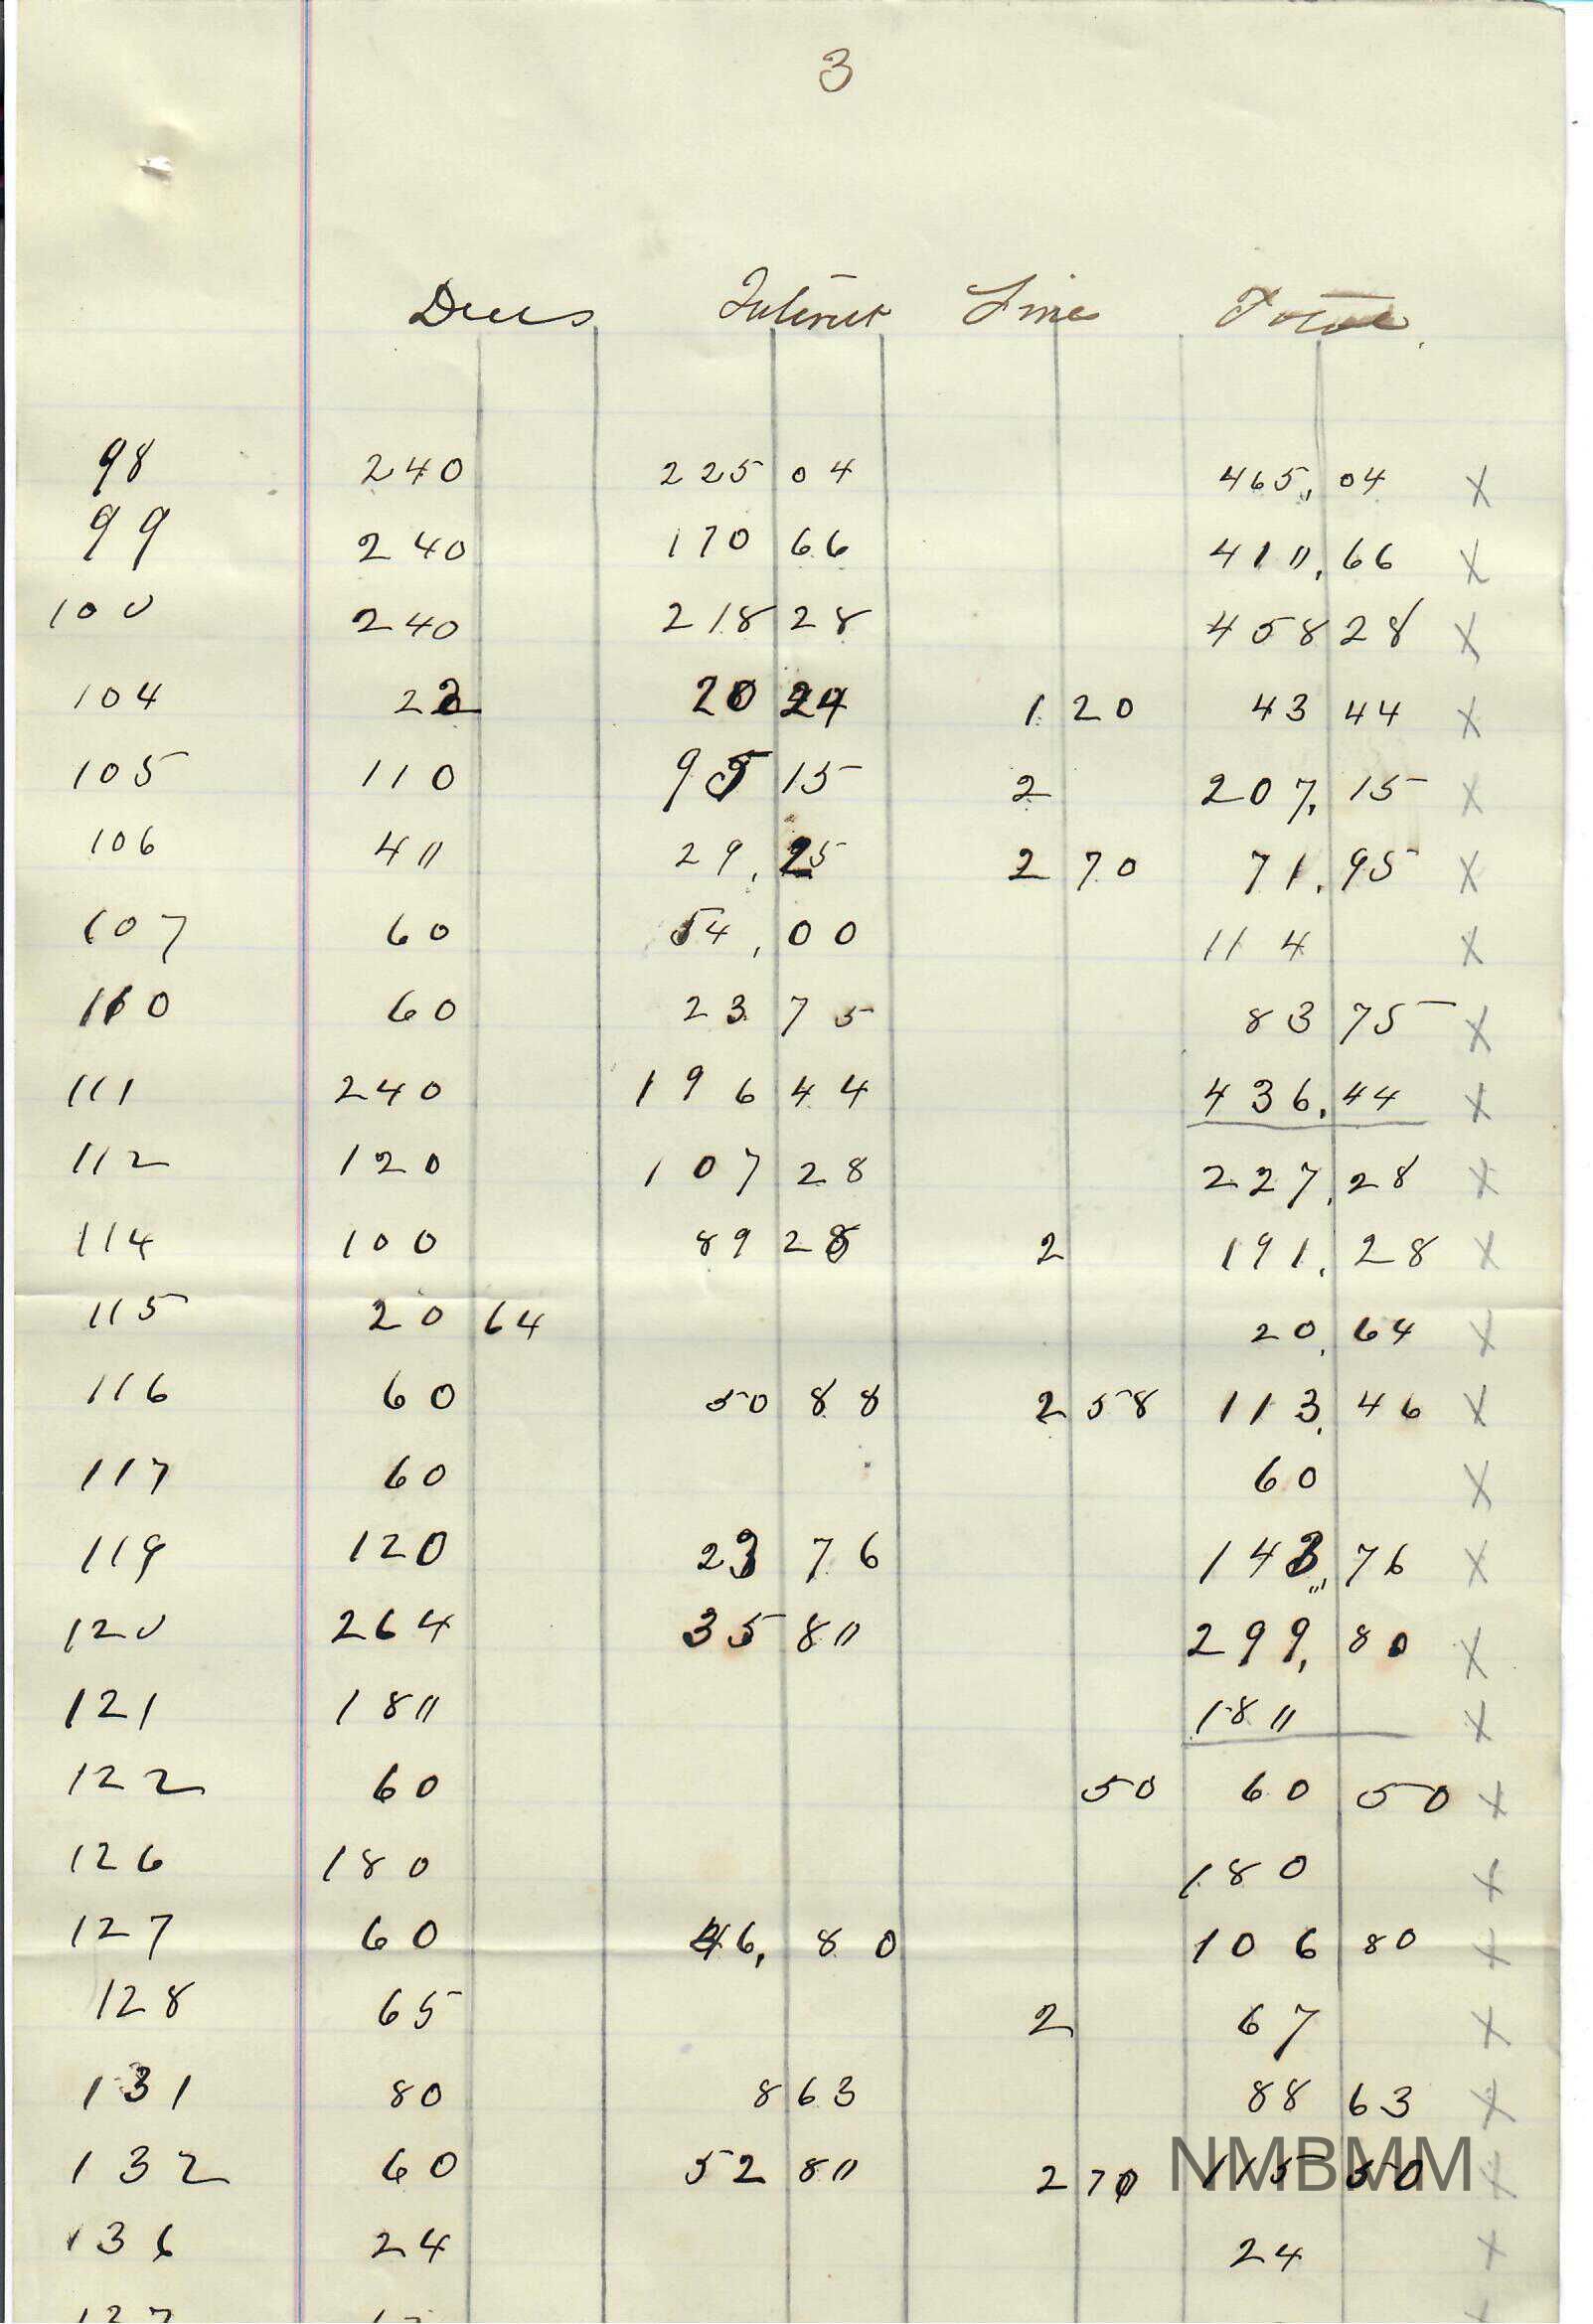 3
Dues Interest Fine Total.
98 240 225 04 465, 04 X
99 240 170 66 410, 66 X
100 240 218 28 458 28 X
104 22 20 24 1 20 43 44 X
105 110 95 15 2 207, 15 X
106 40 29, 25 2 70 71, 95 X
107 60 54, 00 114 X
110 60 23 75 83 75 X
111 240 196 44 436, 44 X
112 120 107 28 227, 28 X
114 100 89 28 2 191, 28 X
115 20 64 20, 64 X
116 60 50 88 2 58 113, 46 X
117 60 60 X
119 120 23 76 143, 76 X
120 264 35 80 299, 80 X
121 180 180 X
122 60 50 60 50 X
126 180 180 X
127 60 46, 80 106 80 X
128 65 2 67 X
131 80 8 63 88 63 X
132 60 52 80 2 70 115 50 X
NMBMM
136 24 24 X